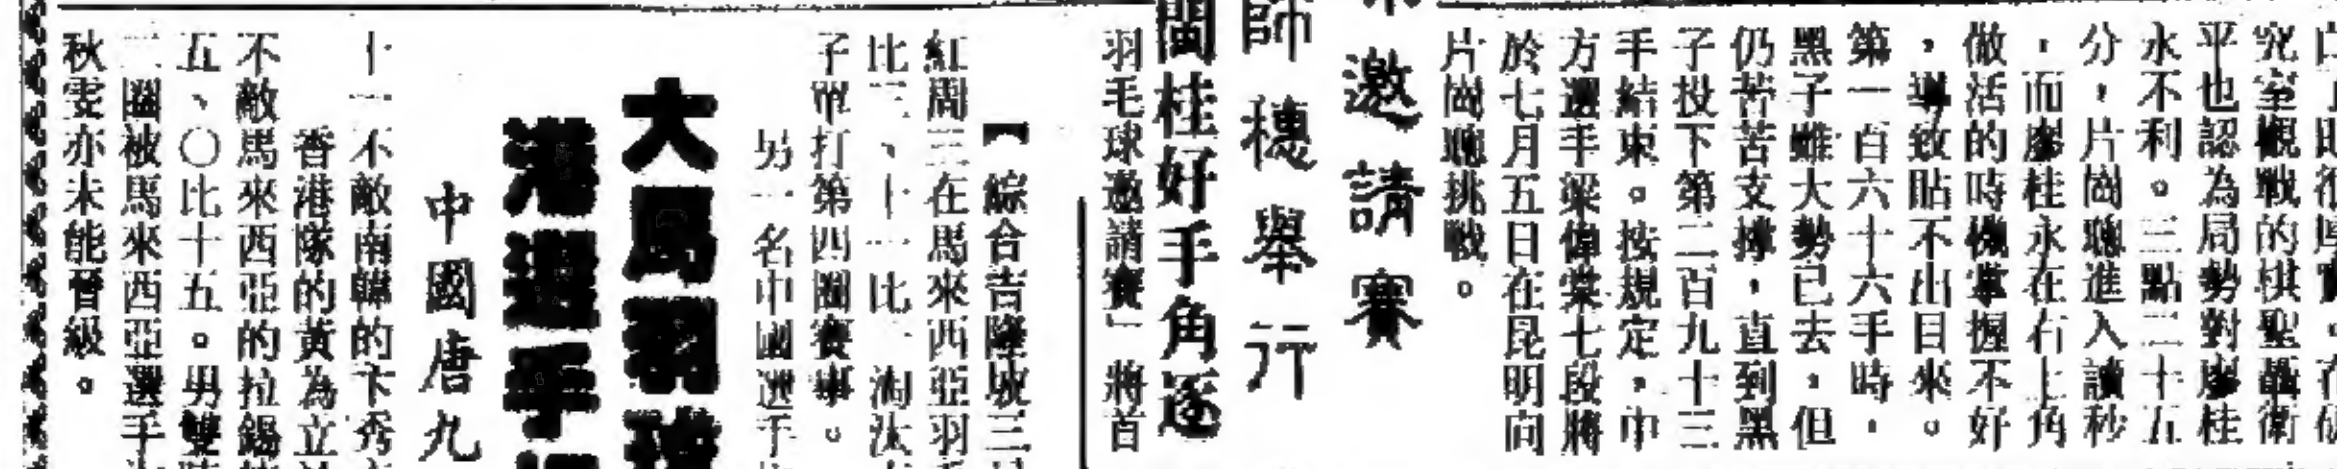 究室觀戰的棋聖聶衛
平也認為局勢對廖桂
永不利。三點二十五
分，片岡聰進入讀秒
，而廖桂永在右上角
做活的時機掌握不好
，導致貼不出目來。
第一百六十六手時，
黑子雖大勢已去，但
仍苦苦支撐，直到黑
子投下第二百九十三
手結束。按規定，中
方選手梁偉棠七段將
於七月五日在昆明向
片岡聰挑戰。
邀請賽
師穗舉行
閩桂好手角逐
羽毛球邀請賽」將首
【綜合吉隆坡三
紅周三在馬來西亞羽
比三、十一比一淘汰
子單打第四圈賽事。
另一名中國選手
大馬羽
港選手
中國唐九
十一不敵南韓的
香港隊的黃為立
不敵馬來西亞的拉錫
五、〇比十五。男雙
二圈被馬來西亞選手
秋雯亦未能晉級。